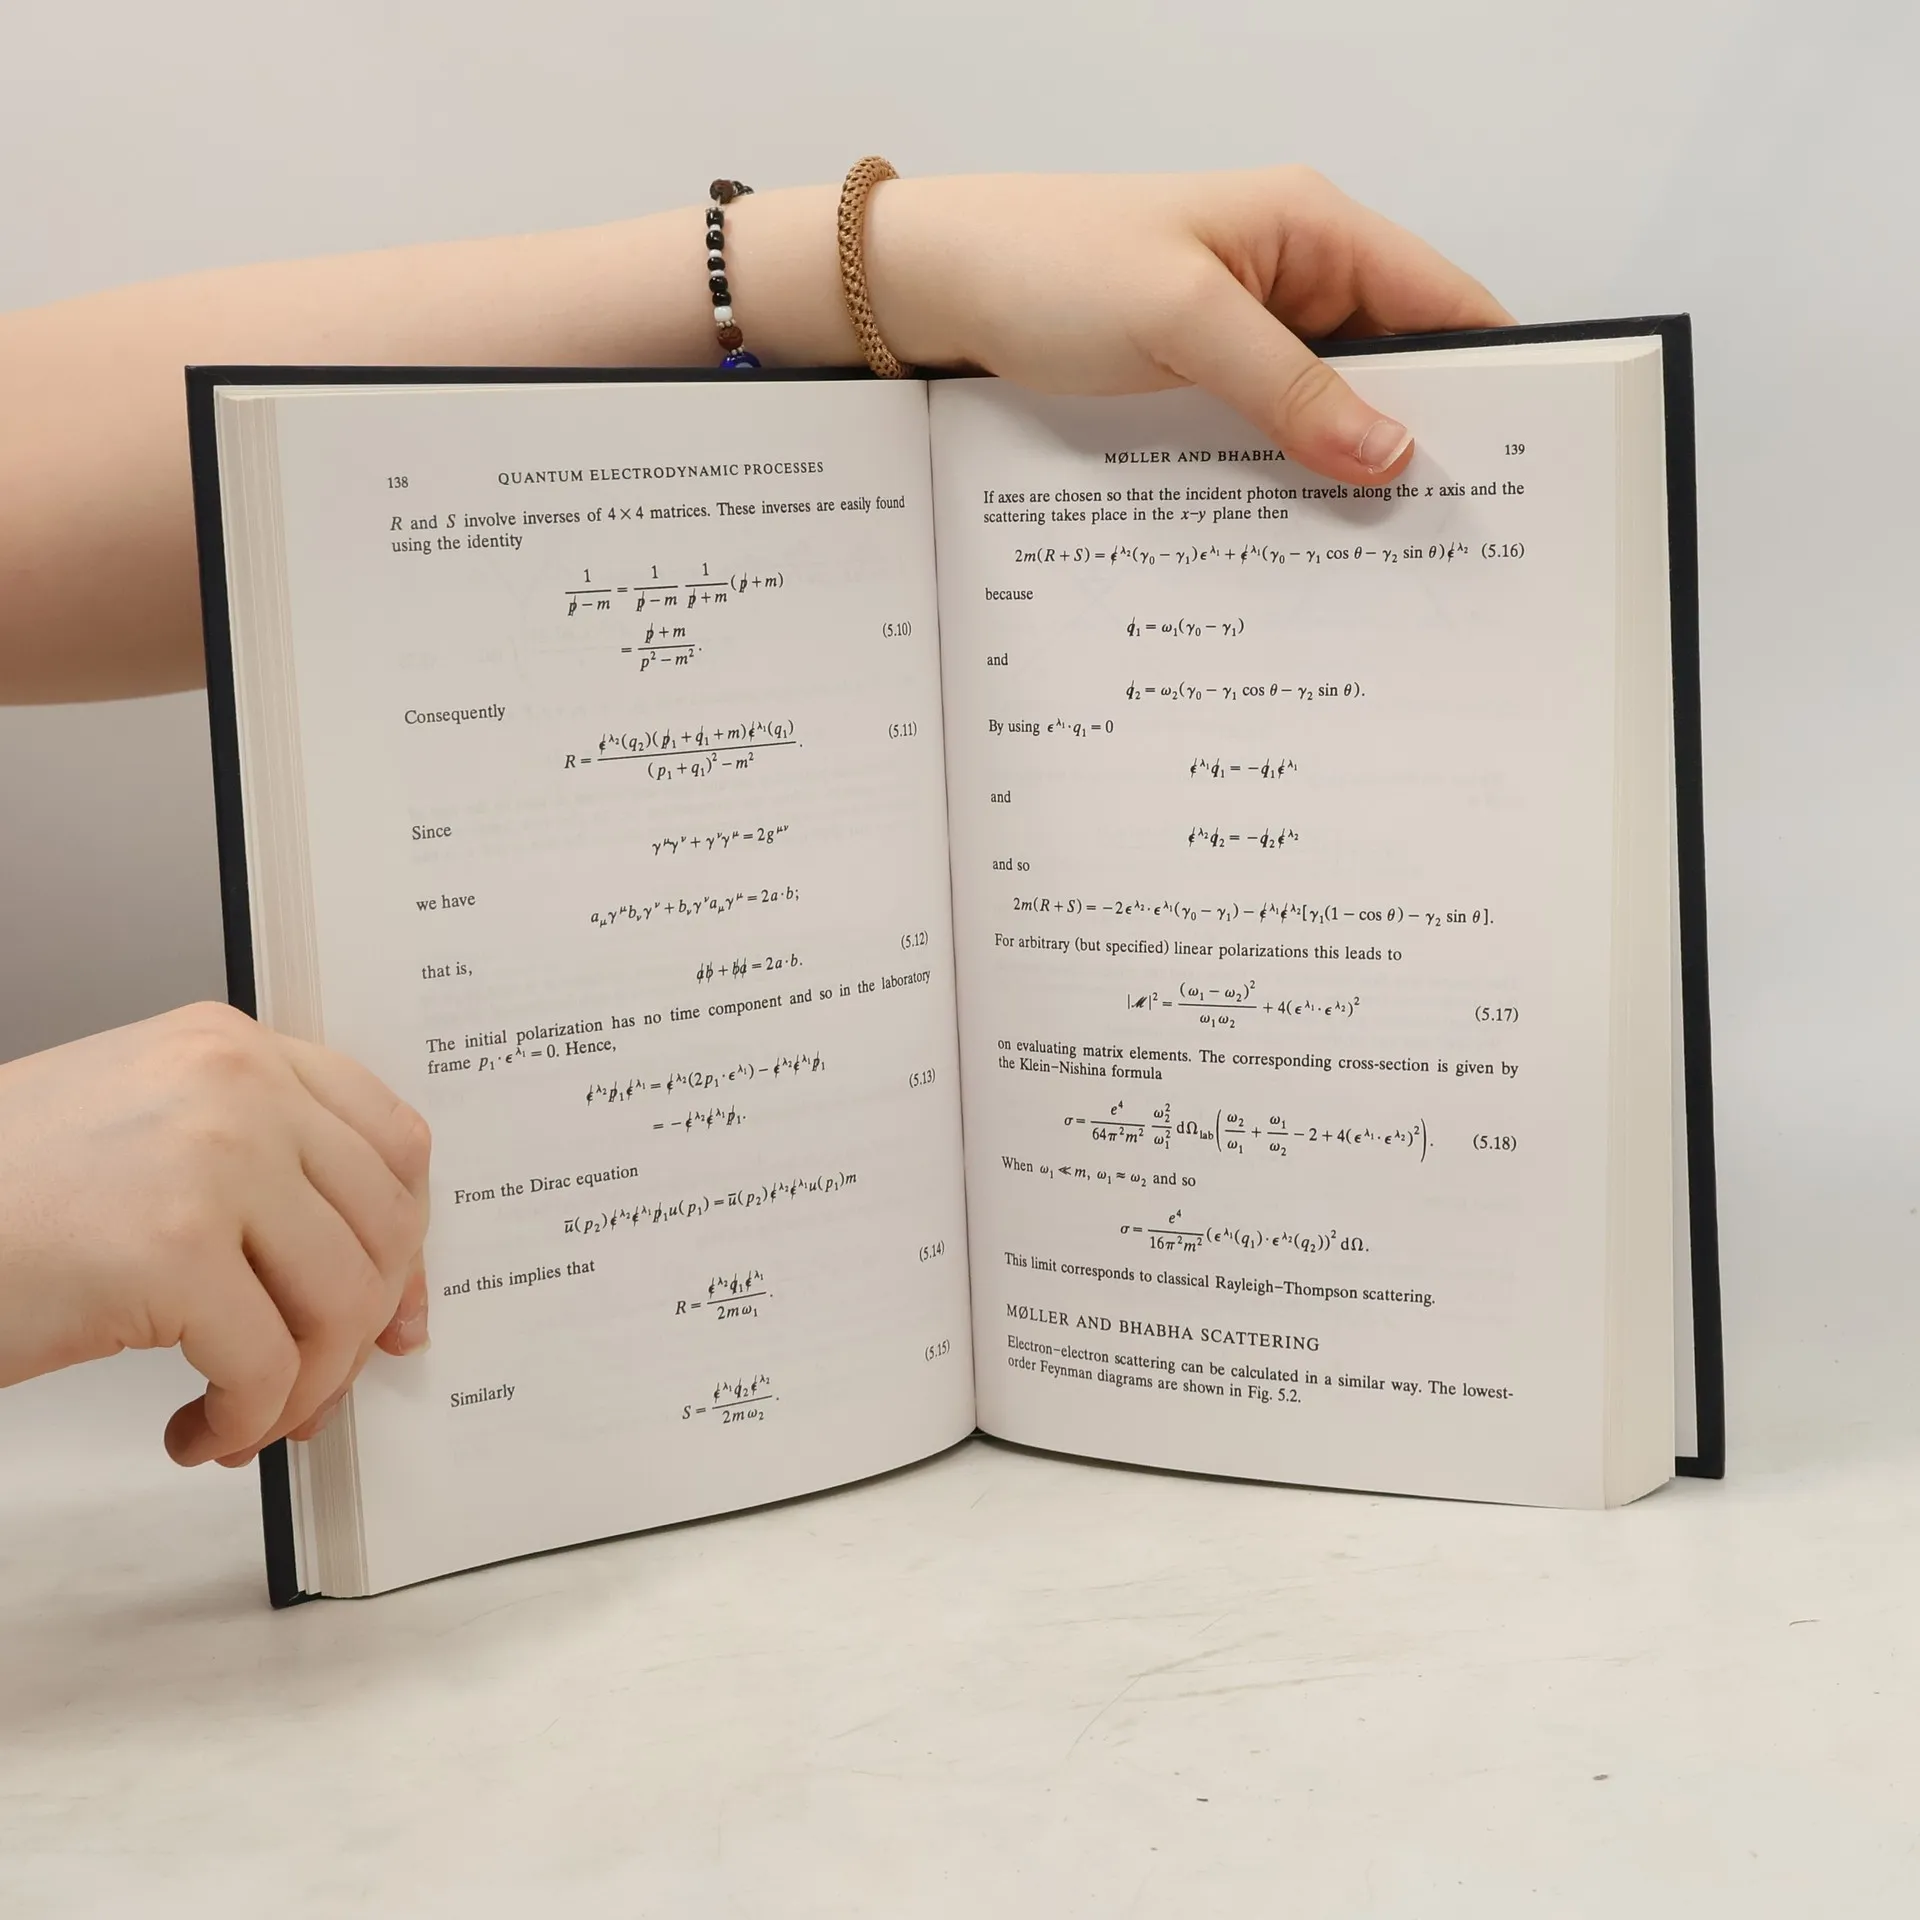 138 QUANTUM ELECTRODYNAMIC PROCESSES
R and S involve inverses of 4 × 4 matrices. These inverses are easily found
using the identity
1/(p̸ − m) = 1/(p̸ − m) 1/(p̸ + m) (p̸ + m)
= (p̸ + m)/(p² − m²). (5.10)
Consequently
R = ε̸^λ₂(q₂)(p̸₁ + q̸₁ + m)ε̸^λ₁(q₁)/((p₁ + q₁)² − m²). (5.11)
Since
γ^μγ^ν + γ^νγ^μ = 2g^μν
we have
a_μγ^μb_νγ^ν + b_νγ^νa_μγ^μ = 2a·b;
that is, (5.12)
a̸b̸ + b̸a̸ = 2a·b.
The initial polarization has no time component and so in the laboratory
frame p₁·ε^λ₁ = 0. Hence,
ε̸^λ₂p̸₁ε̸^λ₁ = ε̸^λ₂(2p₁·ε^λ₁) − ε̸^λ₂ε̸^λ₁p̸₁ (5.13)
= −ε̸^λ₂ε̸^λ₁p̸₁.
From the Dirac equation
ū(p₂)ε̸^λ₂ε̸^λ₁p̸₁u(p₁) = ū(p₂)ε̸^λ₂ε̸^λ₁u(p₁)m
and this implies that (5.14)
R = ε̸^λ₂q̸₁ε̸^λ₁/(2mω₁).
Similarly (5.15)
S = ε̸^λ₁q̸₂ε̸^λ₂/(2mω₂).
MØLLER AND BHABHA 139
If axes are chosen so that the incident photon travels along the x axis and the
scattering takes place in the x–y plane then
2m(R + S) = ε̸^λ₂(γ₀ − γ₁)ε^λ₁ + ε̸^λ₁(γ₀ − γ₁ cos θ − γ₂ sin θ)ε̸^λ₂ (5.16)
because
q̸₁ = ω₁(γ₀ − γ₁)
and
q̸₂ = ω₂(γ₀ − γ₁ cos θ − γ₂ sin θ).
By using ε^λ₁·q₁ = 0
ε̸^λ₁q̸₁ = −q̸₁ε̸^λ₁
and
ε̸^λ₂q̸₂ = −q̸₂ε̸^λ₂
and so
2m(R + S) = −2ε^λ₂·ε^λ₁(γ₀ − γ₁) − ε̸^λ₁ε̸^λ₂[γ₁(1 − cos θ) − γ₂ sin θ].
For arbitrary (but specified) linear polarizations this leads to
|ℳ|² = (ω₁ − ω₂)²/(ω₁ω₂) + 4(ε^λ₁·ε^λ₂)² (5.17)
on evaluating matrix elements. The corresponding cross-section is given by
the Klein–Nishina formula
σ = e⁴/(64π²m²) ω₂²/ω₁² dΩ_lab(ω₂/ω₁ + ω₁/ω₂ − 2 + 4(ε^λ₁·ε^λ₂)²). (5.18)
When ω₁ ≪ m, ω₁ ≈ ω₂ and so
σ = e⁴/(16π²m²) (ε^λ₁(q₁)·ε^λ₂(q₂))² dΩ.
This limit corresponds to classical Rayleigh–Thompson scattering.
MØLLER AND BHABHA SCATTERING
Electron–electron scattering can be calculated in a similar way. The lowest-
order Feynman diagrams are shown in Fig. 5.2.